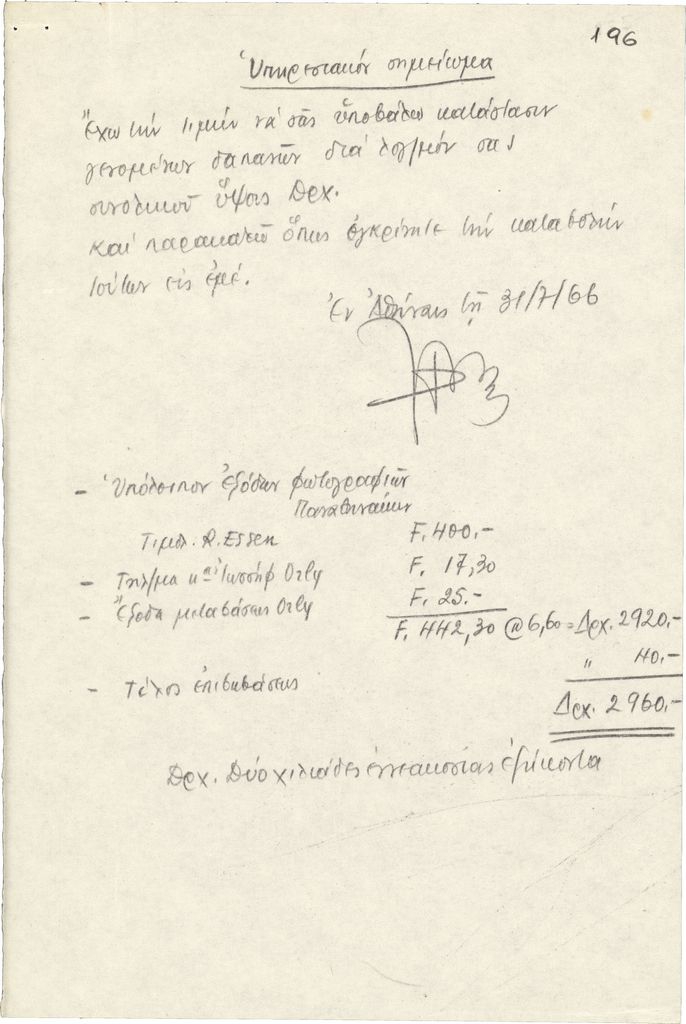 196
Ὑπηρεσιακόν σημείωμα
Ἔχω τήν τιμήν νά σᾶς ὑποβάλω κατάστασιν
γενομένων δαπανῶν διά λογ/μόν σας
συνολικοῦ ὕψους Δρχ.
καί παρακαλῶ ὅπως ἐγκρίνητε τήν καταβολήν
τούτων εἰς ἐμέ.
Ἐν Ἀθήναις τῇ 31/7/66
- Ὑπόλοιπον ἐξόδων φωτογραφιῶν
Παναθηναίων
Τιμολ. R. Essen F. 400,-
- Τηλ/μα Ἰωσήφ Orly F. 17,30
- Ἔξοδα μεταβάσεων Orly F. 25.-
F. 442,30 @ 6,60 = Δρχ. 2920,-
- Τέλος ἐπιβιβάσεως " 40,-
Δρχ. 2960,-
Δρχ. Δύο χιλιάδες ἐννεακοσίας ἑξήκοντα